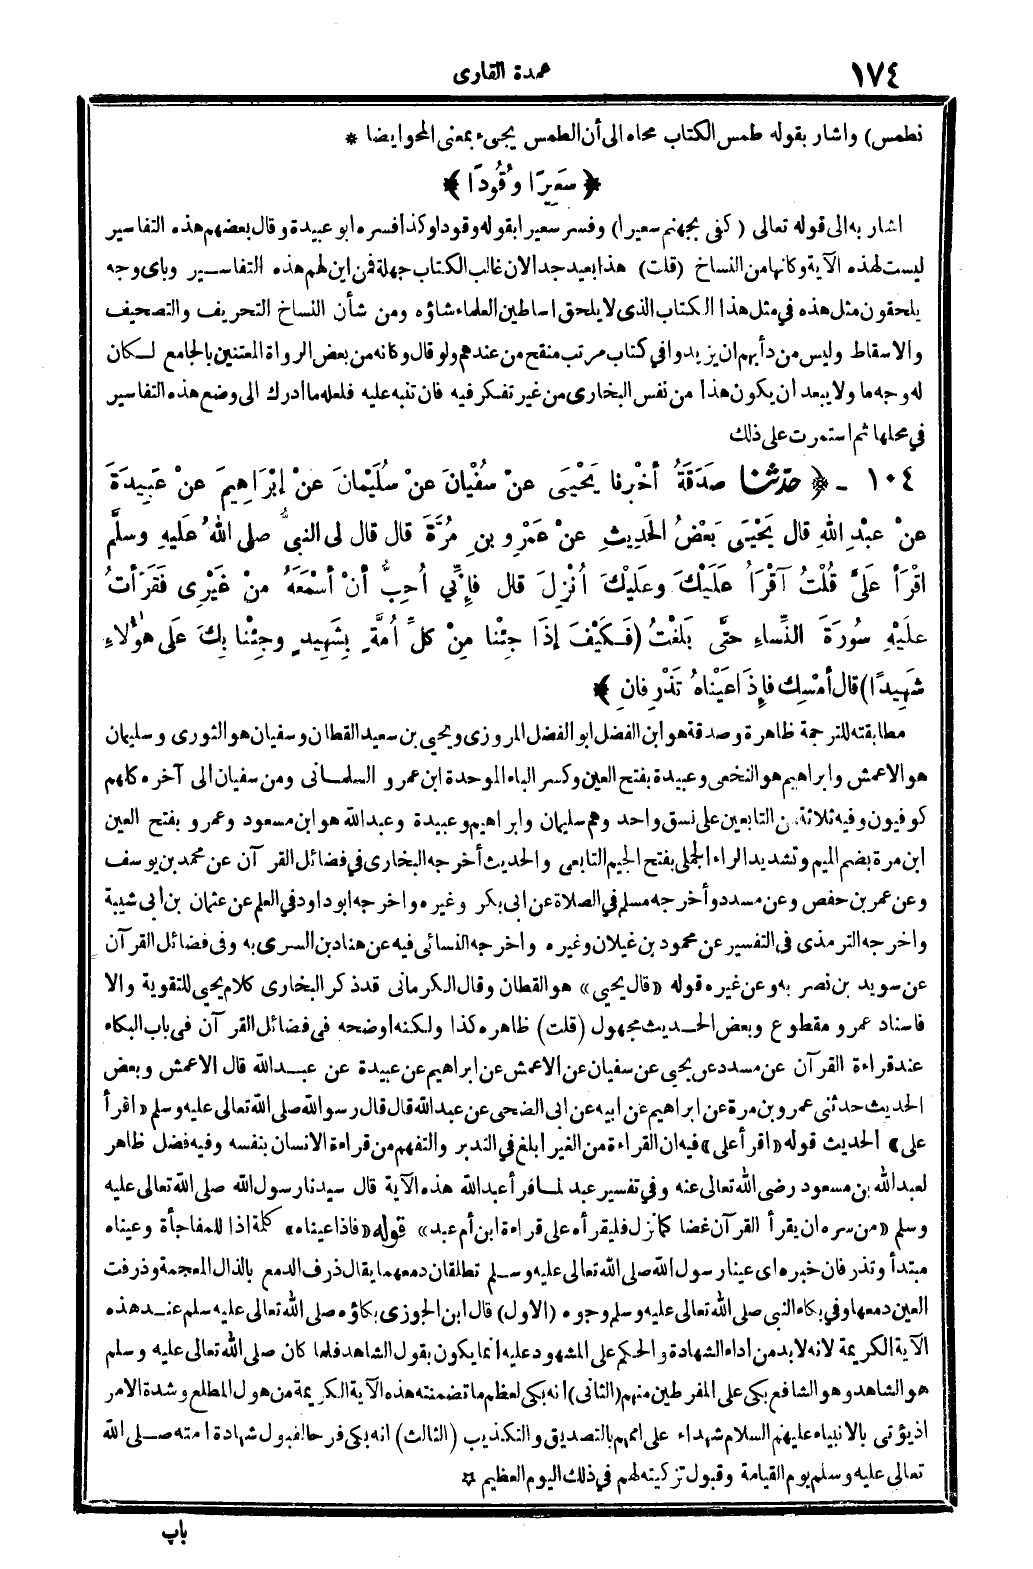 ١٧٤
عمدة القارى
نطمس) واشار بقوله طمس الكتاب محاه الى أن الطمس يجىء بمعنى المحو ايضا *
﴿ سَعِيرًا وقُودًا ﴾
اشار به الى قوله تعالى ( كفى بجهنم سعيرا) وفسر سعيرا بقوله وقودا وكذا فسره ابو عبيدة وقال بعضهم هذه التفاسير
ليست لهذه الآية وكانها من النساخ (قلت) هذا بعيد جدا لان غالب الكتاب جهلة فمن اين لهم هذه التفاسير وباى وجه
يلحقون مثل هذه في مثل هذا الكتاب الذى لا يلحق اساطين العلماء شاؤه ومن شأن النساخ التحريف والتصحيف
والاسقاط وليس من دأبهم ان يزيدوا في كتاب مرتب منقح من عندهم ولو قال وكانه من بعض الرواة المعتنين بالجامع لكان
له وجه ما ولا يبعد ان يكون هذا من نفس البخارى من غير تفكر فيه فان تنبه عليه فلعله ما أدرك الى وضع هذه التفاسير
في محلها ثم استمرت على ذلك
١٠٤ - ﴿ حدّثنا صَدَقَةُ أخْبرنا يَحْيَى عنْ سُفْيانَ عنْ سُلَيْمانَ عنْ إبْرَاهِيمَ عنْ عَبِيدَةَ
عنْ عبْدِ اللهِ قال يَحْيَى بَعْضُ الحَدِيثِ عنْ عَمْرِو بنِ مُرَّةَ قال قال لى النبىُّ صلى اللهُ عَليهِ وسلَّم
اقْرَأ علَىَّ قُلْتُ آقْرَأُ عَلَيْكَ وعلَيْكَ أُنْزِلَ قال فإنِّي أُحِبُّ أنْ أسْمَعَهُ منْ غَيْرِى فَقَرَأتُ
علَيْهِ سُورَةَ النِّساءِ حتَّى بَلَغْتُ (فَكَيْفَ إذَا جِئْنا مِنْ كلِّ أُمَّةٍ بِشَهِيدٍ وجِئْنا بِكَ عَلى هؤُلاءِ
شَهِيدًا) قال أمْسِك فإِذَا عَيْناهُ تَذْرِفانِ ﴾
مطابقته للترجمة ظاهرة وصدقة هو ابن الفضل ابو الفضل المروزى ويحيى بن سعيد القطان وسفيان هو الثورى وسليمان
هو الاعمش وابراهيم هو النخعى وعبيدة بفتح العين وكسر الباء الموحدة ابن عمرو السلمانى ومن سفيان الى آخره كلهم
كوفيون وفيه ثلاثة من التابعين على نسق واحد وهم سليمان وابراهيم وعبيدة وعبدالله هو ابن مسعود وعمرو بفتح العين
ابن مرة بضم الميم وتشديد الراء الجملى بفتح الجيم التابعى والحديث أخرجه البخارى في فضائل القرآن عن محمد بن يوسف
وعن عمر بن حفص وعن مسدد وأخرجه مسلم في الصلاة عن ابى بكر وغيره واخرجه ابو داود في العلم عن عثمان بن أبى شيبة
واخرجه الترمذى فى التفسير عن محمود بن غيلان وغيره واخرجه النسائى فيه عن هناد بن السرى به وفى فضائل القرآن
عن سويد بن نصر به وعن غيره قوله «قال يحيى» هو القطان وقال الكرمانى قد ذكر البخارى كلام يحيى للتقوية والا
فاسناد عمرو مقطوع وبعض الحديث مجهول (قلت) ظاهره كذا ولكنه اوضحه في فضائل القرآن فى باب البكاء
عند قراءة القرآن عن مسدد عن يحيى عن سفيان عن الاعمش عن ابراهيم عن عبيدة عن عبدالله قال الاعمش وبعض
الحديث حدثنى عمرو بن مرة عن ابراهيم عن ابيه عن ابى الضحى عن عبدالله قال قال رسول الله صلى الله تعالى عليه وسلم «اقرأ
على» الحديث قوله «اقرأ على» فيه ان القراءة من الغير ابلغ في التدبر والتفهم من قراءة الانسان بنفسه وفيه فضل ظاهر
لعبدالله بن مسعود رضى الله تعالى عنه وفي تفسير عبد لما قرأ عبدالله هذه الآية قال سيدنا رسول الله صلى الله تعالى عليه
وسلم «من سره ان يقرأ القرآن غضا كما نزل فليقرأه على قراءة ابن أم عبد» قوله «فاذا عيناه» كلمة اذا للمفاجأة وعيناه
مبتدأ وتذرفان خبره اى عينا رسول الله صلى الله تعالى عليه وسلم تطلقان دمعهما يقال ذرف الدمع بالذال المعجمة وذرفت
العين دمعها وفي بكاء النبى صلى الله تعالى عليه وسلم وجوه (الاول) قال ابن الجوزى بكاؤه صلى الله تعالى عليه سلم عند هذه
الآية الكريمة لانه لا بد من اداء الشهادة والحكم على المشهود عليه انما يكون بقول الشاهد فلما كان صلى الله تعالى عليه وسلم
هو الشاهد وهو الشافع بكى على المفرطين منهم (الثانى) انه بكى لعظم ما تضمنته هذه الآية الكريمة من هول المطلع وشدة الامر
اذ يؤتى بالانبياء عليهم السلام شهداء على اممهم بالتصديق والتكذيب (الثالث) انه بكى فرحا لقبول شهادة امته صلى الله
تعالى عليه وسلم يوم القيامة وقبول تزكيته لهم في ذلك اليوم العظيم *
باب